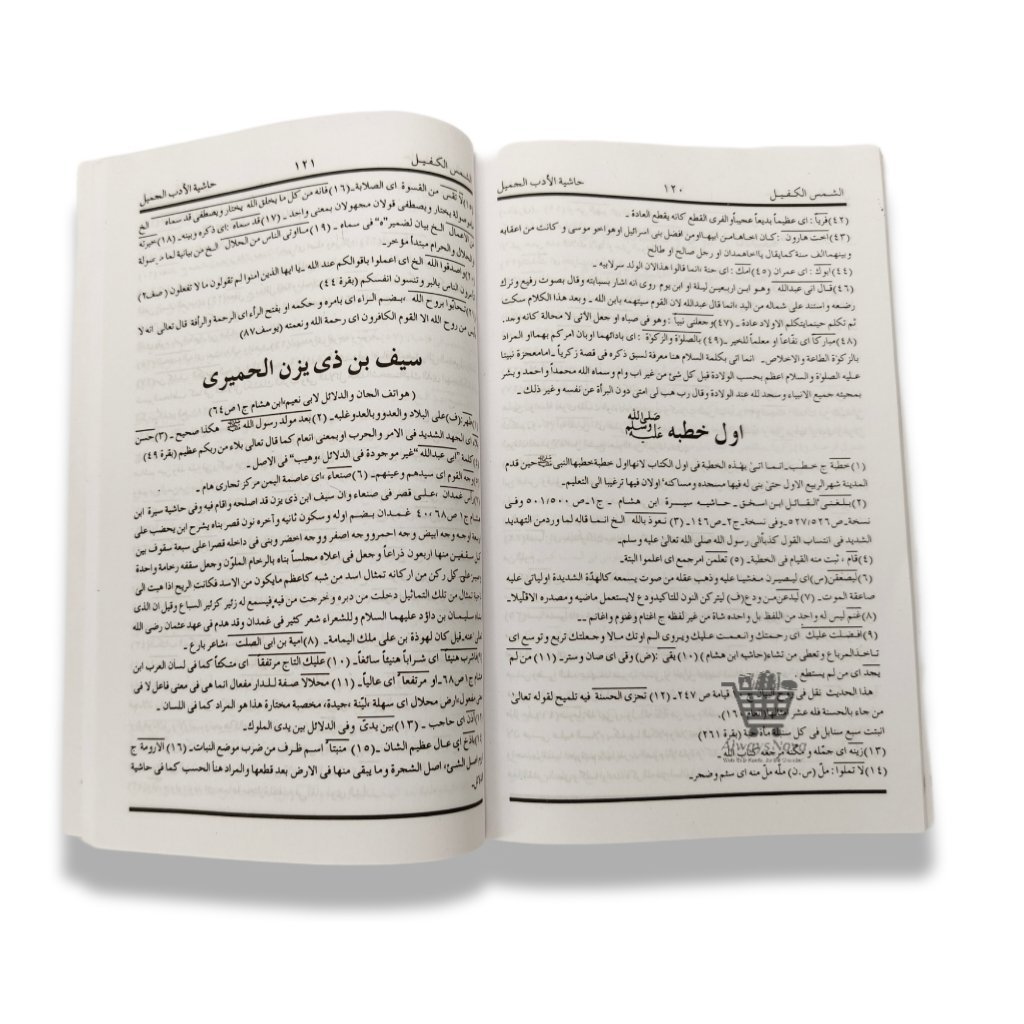 الشمس الكفيل ١٢٠ حاشية الأدب الجميل
(٤٢) فرياً : اى عظيماً بديعاً عجيباً او الفرى القطع كانه يقطع العادة ـ
(٤٣) اخت هارون : كان اخاها من ابيها او من افضل بنى اسرائيل او هو اخو موسى و كانت من اعقابه
وبينهما الف سنة كما يقال يا اخا همدان او رجل صالح او طالح
(٤٤) ابوك : اى عمران (٤٥) امك : اى حنة ؛ انما قالوا هذا لان الولد سرلابيه ـ
(٤٦) قال انى عبدالله وهو ابن اربعين ليلة او ابن يوم روى انه اشار بسبابته وقال بصوت رفيع وترك
رضعه واستند على شماله من اليد ؛ انما قال عبدالله لان القوم سيتهمه بابن الله ـ وبعد هذا الكلام سكت
ثم تكلم حينما يتكلم الاولاد عادة ـ (٤٧) وجعلنى نبياً : وهو فى صباه او جعل الآتى لا محالة كانه وجد.
(٤٨) مباركا اى نفّاعاً او معلماً للخير ـ (٤٩) بالصلوٰة والزكوٰة : اى بادائهما وبان امركم بهما او المراد
بالزكوٰة الطاعة والاخلاص ـ انما اتى بكلمة السلام هنا معرفة لسبق ذكره فى قصة زكرياً ـ اما معجزة نبينا
عليه الصلوٰة والسلام اعظم بحسب الولادة قبل كل شئ من غير اب وام وسماه الله محمداً واحمد وبشر
بمجيئه جميع الانبياء وسجد لله عند الولادة وقال رب هب لى امتى دون البرأة عن نفسه وغير ذلك ـ
اول خطبه ﷺ
(١) خطبة ج خطب ـ انما اتى بهذه الخطبة فى اول الكتاب لانها اول خطبة خطبها النبى ﷺ حين قدم
المدينة شهر ربيع الاول حتى بنى له فيها مسجده ومساكنه؛ اولان فيها ترغيبا الى التعليم ـ
(٢) بلغنى؛ القائل ابن اسحق ـ حاشيه سيرة ابن هشام ـ ج١ ـ ص ٥٠١/٥٠٠ وفى
نسخة ـ ص ٥٢٧/٥٢٦ ـ وفى نسخة ـ ج٢ ـ ص ١٤٦ ـ (٣) نعوذ بالله الخ انما قاله لما ورد من التهديد
الشديد فى انتساب القول كذباً الى رسول الله صلى الله تعالىٰ عليه وسلم ـ
(٤) قام ، ثبت منه القيام فى الخطبة ـ (٥) تعلمن امر جمع اى اعلموا البتة ـ
(٦) ليصعقن (س) اى ليصيرن مغشيا عليه وذهب عقله من صوت يسمعه كالهدّة الشديدة او لياتى عليه
صاعقة الموت ـ (٧) ليدعن من ودع (ف) ليتركن النون للتاكيد ودع لا يستعمل ماضيه ومصدره الاقليلا ـ
(٨) غنم ليس له واحد من اللفظ بل واحده شاة من غير لفظه ج اغنام وغنوم واغانم ــ
(٩) افضلت عليك اى رحمتك وانعمت عليك ويروى الم اوتك مالا وجعلتك تربع وتوسع اى
تاخذ المرباع وتعطى من تشاء (حاشيه ابن هشام) (١٠) يقى : (ض) وقى اى صان و ستر ـ (١١) من لم
يجد اى من لم يستطع ـ
هذا الحديث نقل فى قيامة ص ٢٤٧ ـ (١٢) تجزى الحسنة فيه تلميح لقوله تعالىٰ
من جاء بالحسنة فله عشر امثالها (انعام ١٦٠).
انبتت سبع سنابل فى كل سنبلة مأة حبة (بقرة ٢٦١)
(١٣) زينه اى جمّله و لكنه مرجعه كتاب الله ـ
(١٤) لا تملوا : ملّ (س.ن) ملّه ملّ منه اى سئم وضجر ـ
AlwaysNoor
الشمس الكفيل ١٢١ حاشية الأدب الجميل
لا تقس من القسوة اى الصلابة ـ (١٦) فانه من كل ما يخلق الله يختار ويصطفى قد سماه الخ
موصولة يختار ويصطفى قولان مجهولان بمعنى واحد ـ (١٧) قد سماه : اى ذكره وبينه ـ (١٨) خيرته
من الاعمال الخ بيان لضمير "ه" فى سماه ـ (١٩) ما اوتى الناس من الحلال الخ من بيانية لما موصولة
والحلال والحرام مبتدأ مؤخر ـ
واصدقوا الله الخ اى اعملوا باقوالكم عند الله ـ يا ايها الذين امنوا لم تقولون ما لا تفعلون (صف ٢)
اتأمرون الناس بالبر وتنسون انفسكم (بقرة ٤٤)
تحابّوا بروح الله ، بضم الراء اى بامره و حكمه او بفتح الراء اى الرحمة والرأفة قال تعالى انه لا
من روح الله الا القوم الكافرون اى رحمة الله ونعمته (يوسف ٨٧)
سيف بن ذى يزن الحميرى
( هواتف الجان و الدلائل لابى نعيم، ابن هشام ج١ ص ٦٤)
ظهر (ف) على البلاد والعدو وبالعدو غلبه ـ (٢) بعد مولد رسول الله ﷺ هكذا صحيح ـ (٣) حسن
اى الجهد الشديد فى الامر والحرب او بمعنى انعام كما قال تعالى بلاء من ربكم عظيم (بقرة ٤٩)
كلمة "ابى عبدالله" غير موجودة فى الدلائل ؛ وهيب" فى الاصل ـ
وجه القوم اى سيدهم وعينهم ـ (٦) صنعاء، اى عاصمة اليمن مركز تجارى هام ـ
رأس غمدان ، على قصر فى صنعاء وان سيف ابن ذى يزن قد اصلحه واقام فيه وفى حاشية سيرة ابن
هشام ج١ ص ٤٠،٦٨ غمدان بضم اوله وسكون ثانيه وآخره نون قصر بناه يشرح ابن يحضب على
اربعة اوجه وجه ابيض وجه احمر ووجه اصفر ووجه اخضر وبنى فى داخله قصرا على سبعة سقوف بين
كل سقفين منها اربعون ذراعاً وجعل فى اعلاه مجلساً بناه بالرخام الملوّن وجعل سقفه رخامة واحدة
وصير على كل ركن من اركانه تمثال اسد من شبه كاعظم مايكون من الاسد فكانت الريح اذا هبت الى
ناحية تمثال من تلك التماثيل دخلت من دبره وخرجت من فيه فيسمع له زئير كزئير السباع وقيل ان الذى
بناه سليمان بن داؤد عليهما السلام وللشعراء شعر كثير فى غمدان وقد هدم فى عهد عثمان رضى الله
عنه ـ قيل كان لهوذة بن على ملك اليمامة ـ (٨) امية بن ابى الصلت ، شاعر بارع ـ
فاشرب هنيئاً اى شراباً هنيئاً سائغاً ـ (١٠) عليك التاج مرتفقاً اى متكئاً كما فى لسان العرب ابن
هشام ج١ ص ٦٨ ـ او مرتفعاً اى عالياً ـ (١١) محلالا صفة للدار مفعال انما هى فى معنى فاعل لا فى
معنى مفعول، ارض محلال اى سهلة ،ليّنة ،جيدة، مخصبة مختارة هذا هو المراد كما فى اللسان ـ
آذن اى حاجب ـ (١٣) بين يدىْ وفى الدلائل بين يدى الملوك ـ
باذخ اى عال عظيم الشان ـ (١٥) منبتاً اسم ظرف من ضرب موضع النبات ـ (١٦) الارومة ج
اروم اصل الشئ، اصل الشجرة وما يبقى منها فى الارض بعد قطعها والمراد هنا الحسب كما فى حاشية